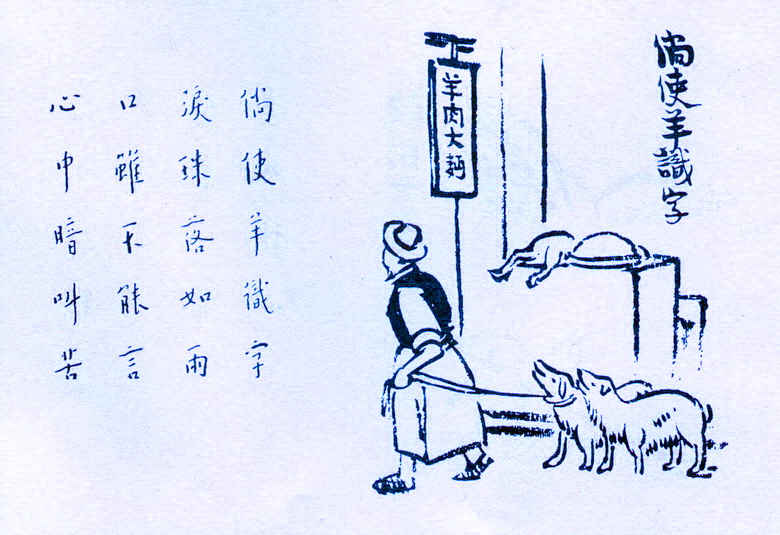 倘使羊識字
羊肉大麪
倘使羊識字
淚珠落如雨
口雖不能言
心中暗叫苦